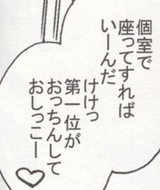 個室で
座ってすれば
いーんだ
けけっ
第一位が
おっちんして
おしっこー
♡